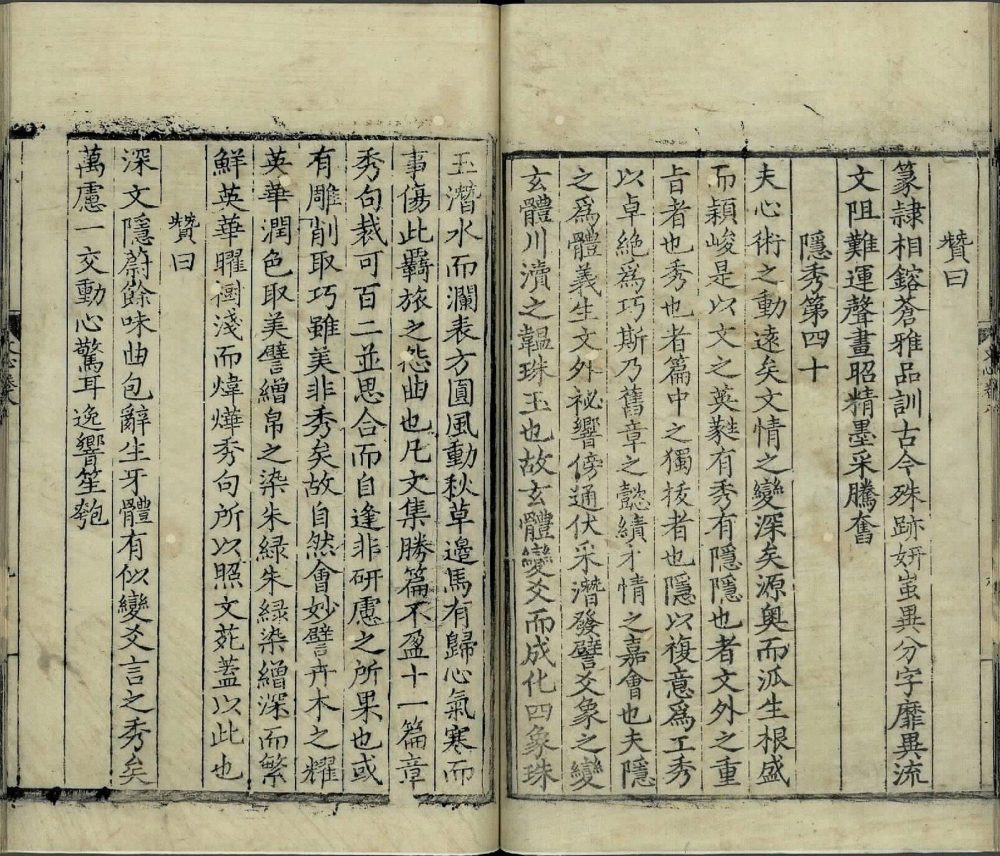 贊曰
篆隷相鎔蒼雅品訓古今殊跡妍蚩異分字靡異流
文阻難運聲畫昭精墨采騰奮
隱秀第四十
夫心術之動遠矣文情之變深矣源奥而泒生根盛
而穎峻是以文之英蕤有秀有隱隱也者文外之重
旨者也秀也者篇中之獨拔者也隱以複意爲工秀
以卓絶爲巧斯乃舊章之懿績才情之嘉會也夫隱
之爲體義生文外祕響傍通伏采潛發譬爻象之變
玄體川瀆之韞珠玉也故玄體變爻而成化四象珠
玉潛水而瀾表方圓風動秋草邊馬有歸心氣寒而
事傷此羇旅之怨曲也凡文集勝篇不盈十一篇章
秀句裁可百二並思合而自逢非研慮之所果也或
有雕削取巧雖美非秀矣故自然會妙譬卉木之耀
英華潤色取美譬繒帛之染朱緑朱緑染繒深而繁
鮮英華曜樹淺而煒燁秀句所以照文苑蓋以此也
贊曰
深文隱蔚餘味曲包辭生牙體有似變爻言之秀矣
萬慮一交動心驚耳逸響笙匏